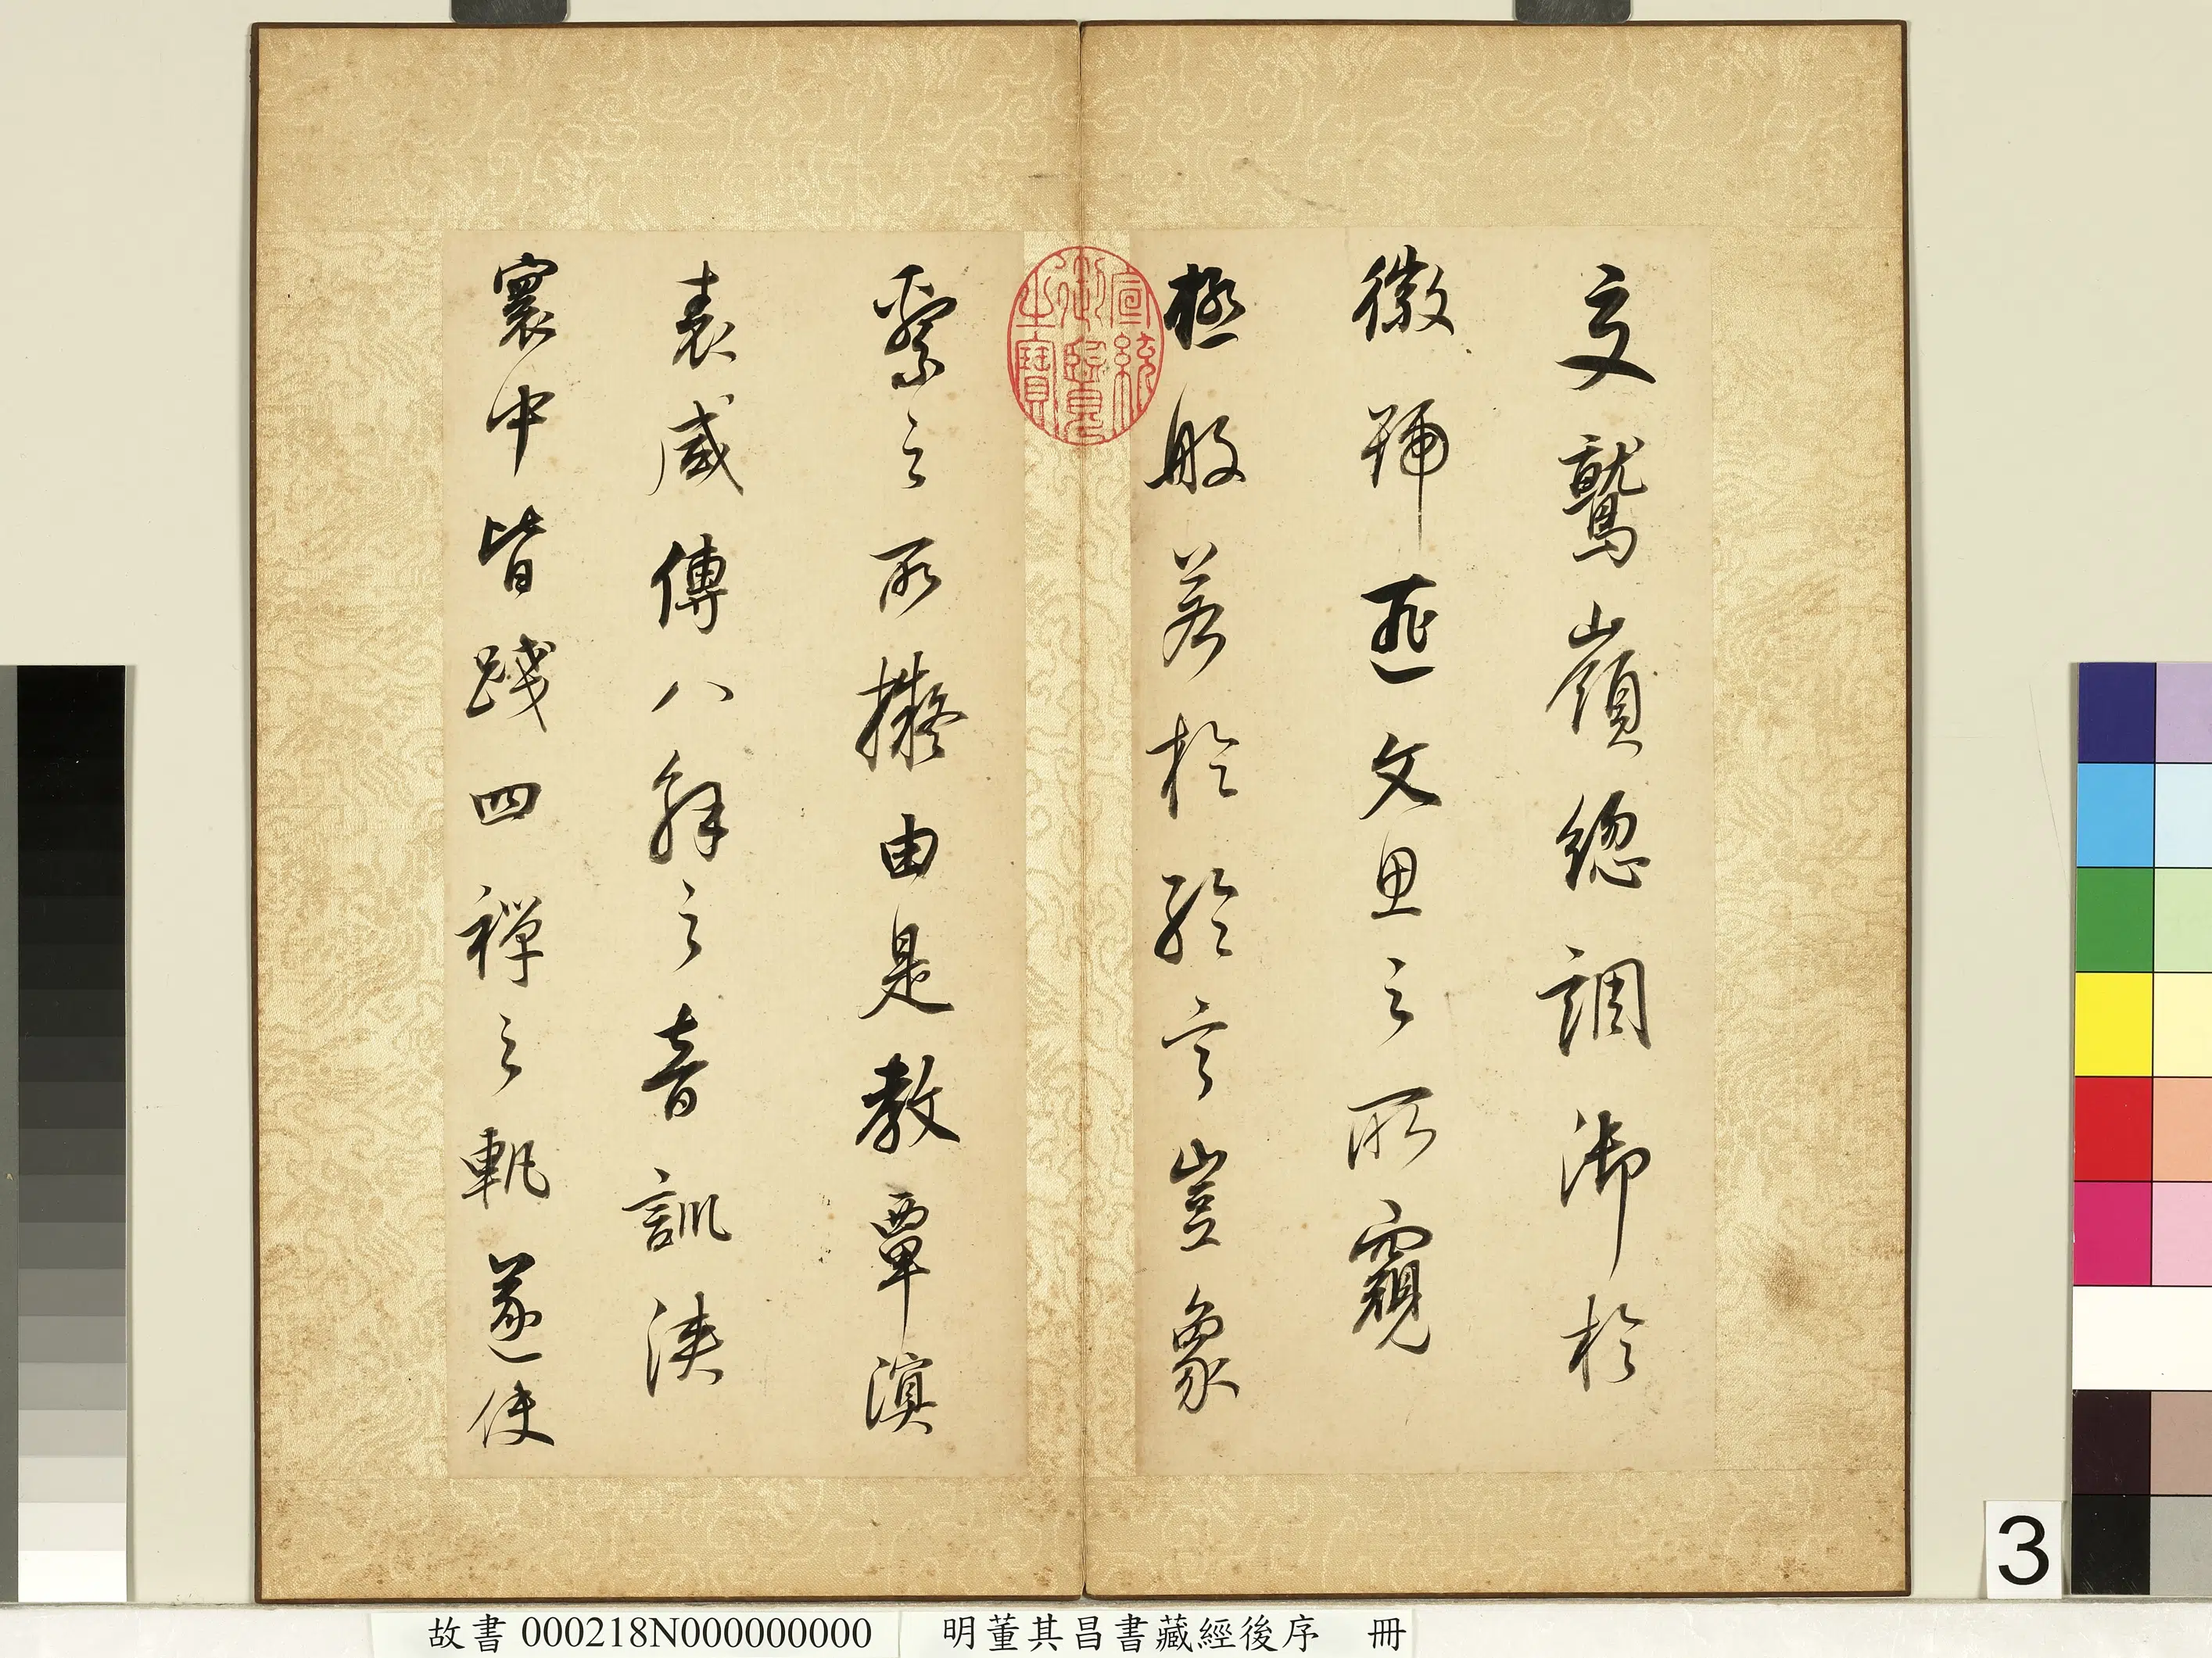 交鷲嶺總調御於
徽號匪文思之所窺
極般若於綸言豈象
繫之所擬由是教覃溟
表咸傳八解之音訓浹
寰中皆踐四禪之軌遂使
宣統
御覽
之寶
3
故書000218N000000000 明董其昌書藏經後序 冊